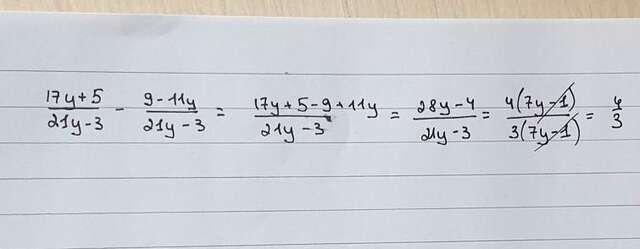 (17y+5)/(21y-3) - (9-11y)/(21y-3) = (17y+5-9+11y)/(21y-3) = (28y-4)/(21y-3) = 4(7y-1)/3(7y-1) = 4/3